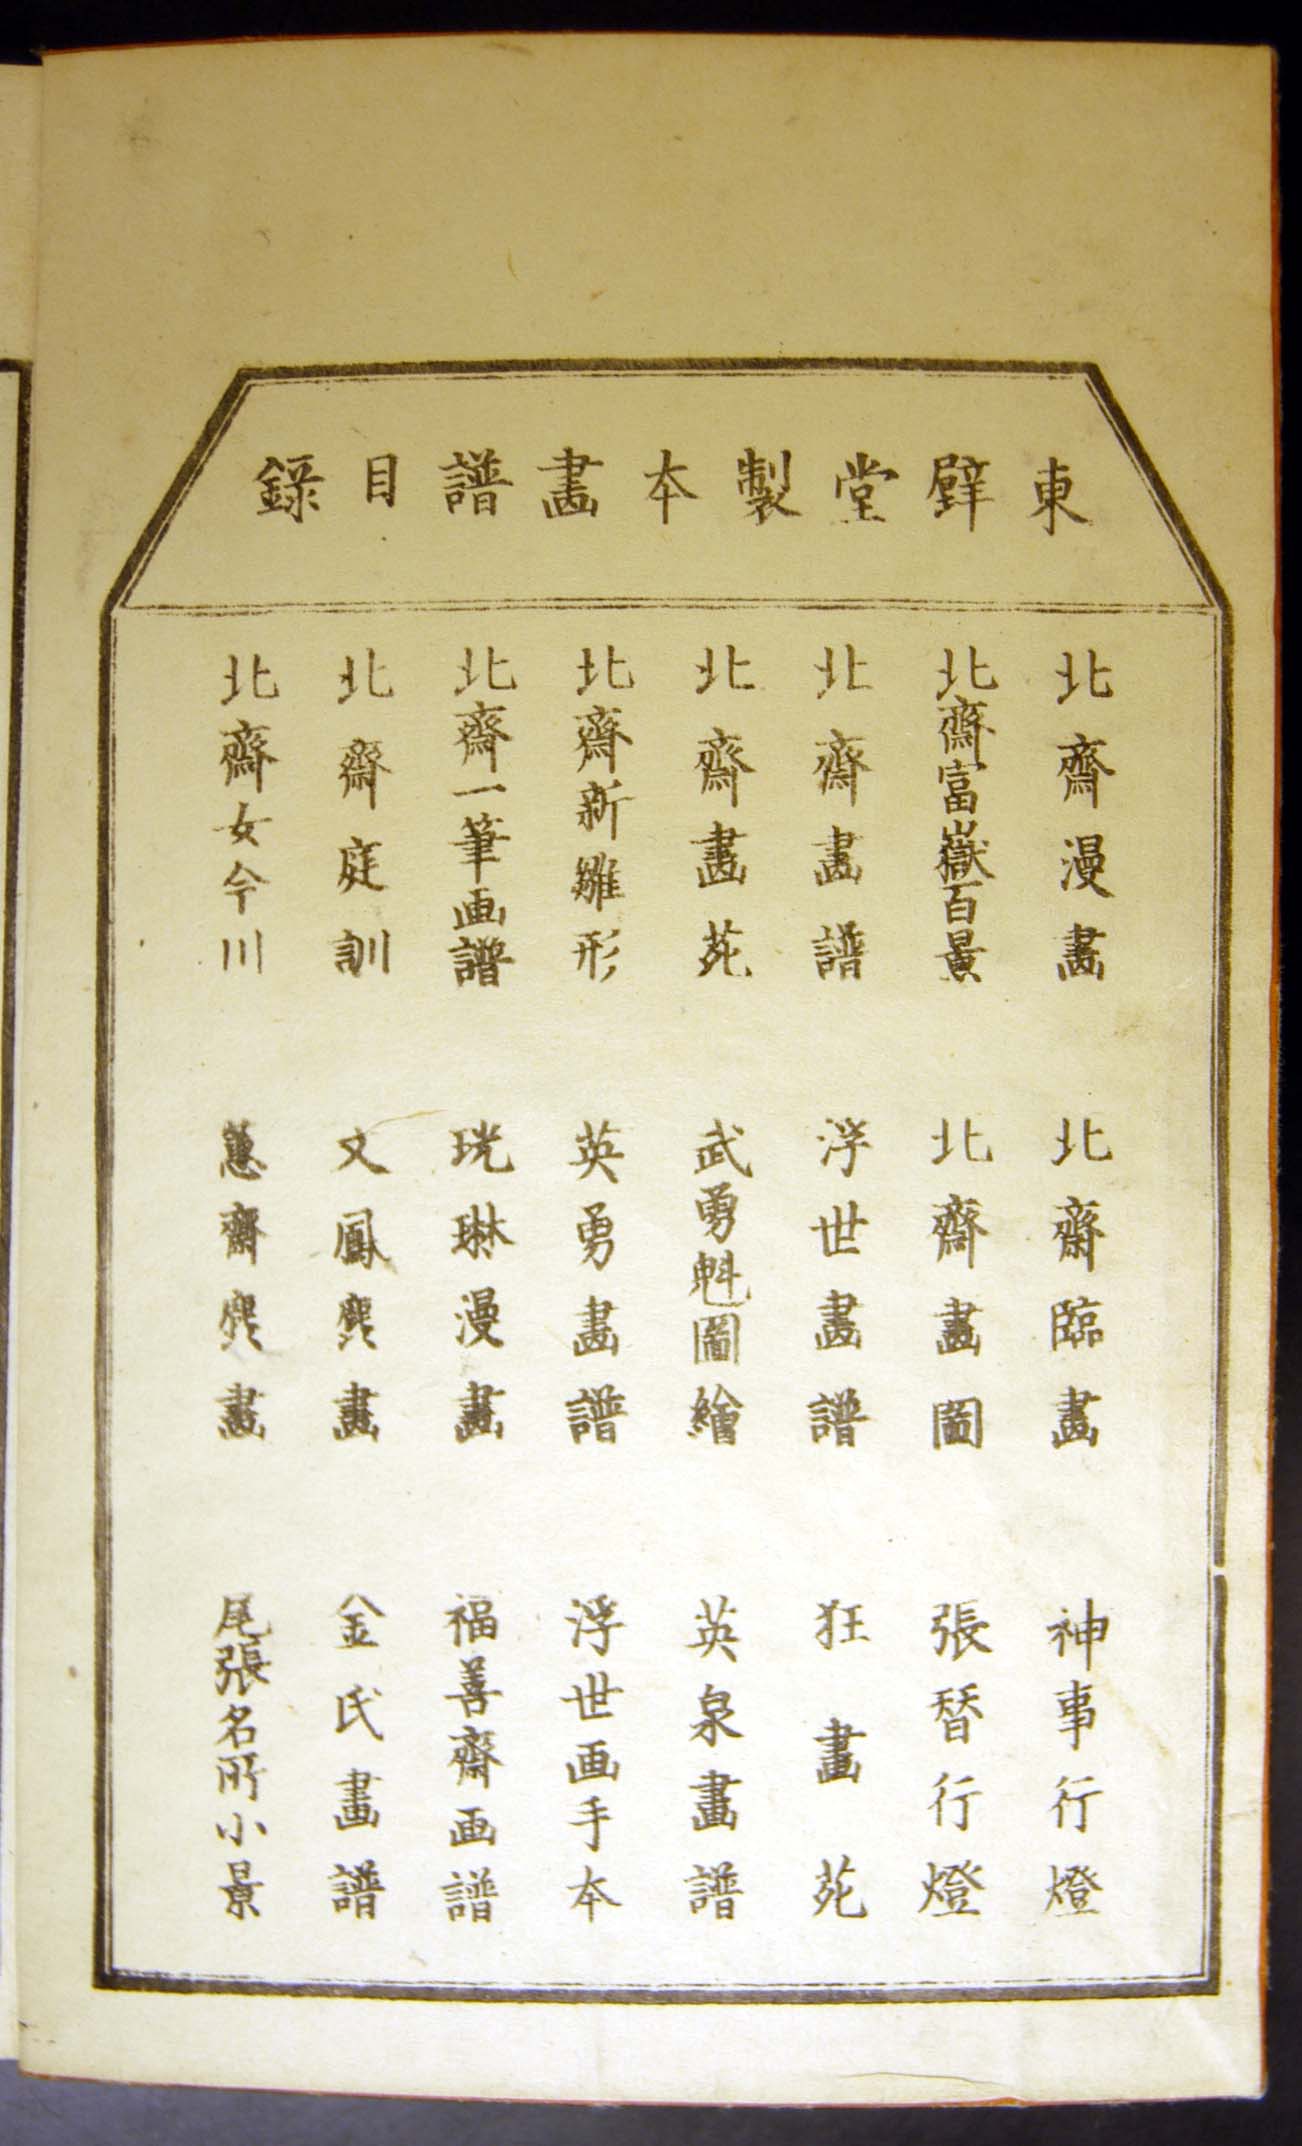 東壁堂製本畫譜目録
北齋漫畫
北齋富嶽百景
北齋畫譜
北齋畫苑
北齋新雛形
北齋一筆画譜
北齋庭訓
北齋女今川
北齋臨畫
北齋畫圖
浮世畫譜
武勇魁圖繪
英勇畫譜
珖琳漫畫
文鳳麁畫
蕙齋麁畫
神事行燈
張替行燈
狂畫苑
英泉畫譜
浮世画手本
福善齋画譜
金氏畫譜
尾張名所小景